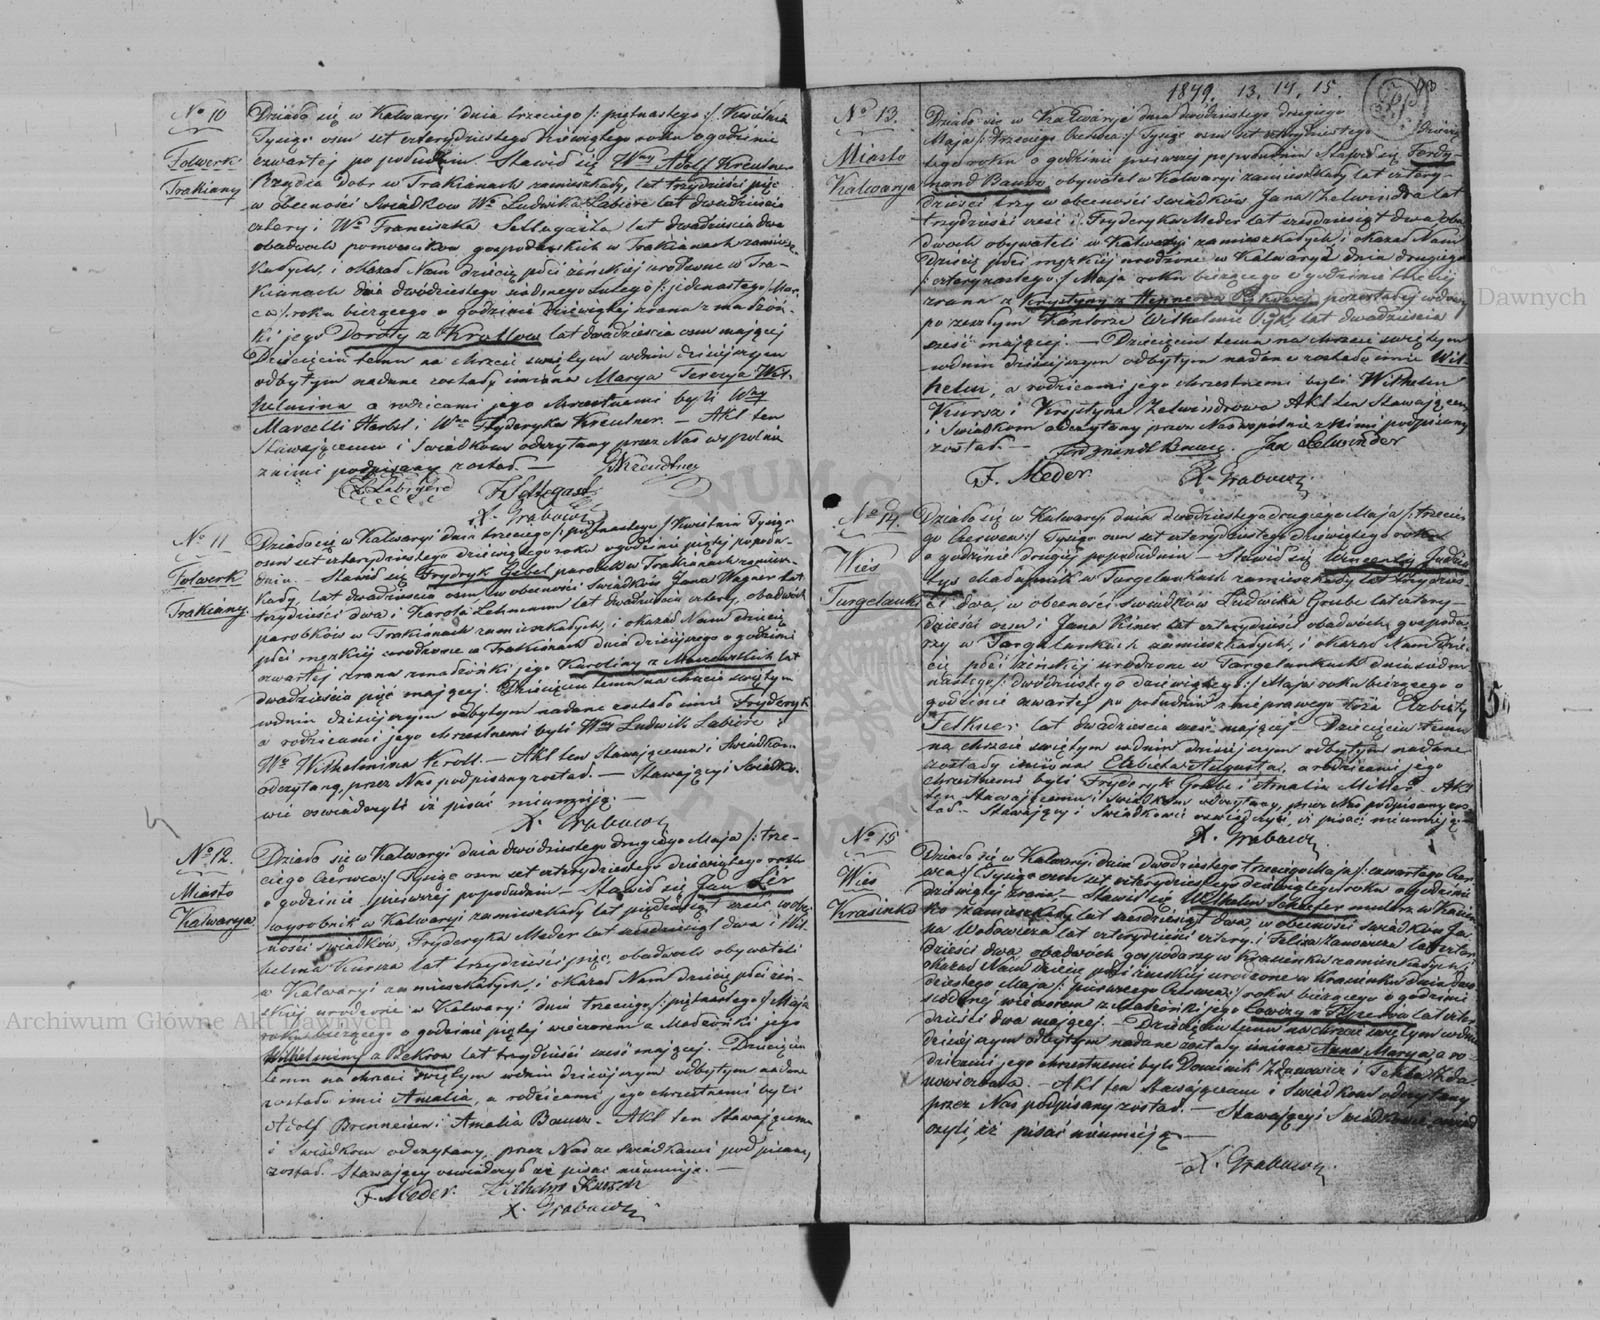 No 10
Folwerk
Trakiany
Działo się w Kalwaryi dnia trzeciego /: piętnastego :/ Kwietnia
Tysiąc osm set czterdziestego dziewiątego roku o godzinie
czwartej po południu. Stawił się Wny Adolf Kreutner
Rządca dobr w Trakianach zamieszkały, lat trzydzieści pięć
w obecności Swiadkow Wo Ludwika Labiere lat dwadzieścia
cztery i Wo Franciszka Settegasta lat dwadzieścia dwa
obadwoch pomocnikow gospodarskich w Trakianach zamiesz-
kałych, i okazał Nam dziecię płci żeńskiej urodzone w Tra-
kianach dnia dwódziestego siódmego Lutego /: jedenastego Mar-
ca :/ roku bieżącego o godzinie dziewiątej zrana z małżon-
ki jego Doroty z Krollow lat dwadzieścia osm mającej
Dziecięciu temu na chrzcie swiętym w dniu dzisiejszym
odbytym nadane zostały imiona Marya Terezya Wil-
helmina a rodzicami jego chrzestnemi byli Wny
Marcelli Herbst i Wna Fryderyka Kreutner. — Akt ten
Stawającemu i Swiadkom odczytany przez Nas wspolnie
z nimi podpisany został. —
L. Labigere
F. Settegast
X. Grabowski
No 11
Folwerk
Trakiany
Działo się w Kalwaryi dnia trzeciego /: piętnastego / Kwietnia Tysiąc
osm set czterdziestego dziewiątego roku o godzinie piątej popołu-
dniu. — Stawił się Frydryk Gebel parobek w Trakianach zamiesz-
kały, lat dwadzieścia osm w obecności Swiadków Jana Wagner lat
trzydzieści dwa i Karola Lehmann lat dwadzieścia cztery, obadwóch
parobków w Trakianach zamieszkałych, i okazał Nam dziecię
płci męzkiej urodzone w Trakianach dnia dzisiejszego o godzinie
czwartej zrana z małżonki jego Karoliny z lat
dwadzieścia pięć mającej. Dziecięciu temu na chrzcie swiętym
w dniu dzisiejszym odbytym nadane zostało imie Fryderyk
a rodzicami jego chrzestnemi byli Wny Ludwik Labiere i
Wa Wilhelmina Kroll. — Akt ten Stawającemu i Swiadkom
odczytany, przez Nas podpisany został. — Stawający i Swiadko-
wie oswiadczyli iż pisać nieumieją. —
X. Grabowski
No 12.
Miasto
Kalwarya
Działo się w Kalwaryi dnia dwódziestego drugiego Maja /: trze-
ciego Czerwca :/ Tysiąc osm set czterdziestego dziewiątego roku
o godzinie pierwszej popołudniu — Stawił się Jan Lér
wyrobnik w Kalwaryi zamieszkały lat pięćdziesiąt sześć w obec-
ności swiadków, Fryderyka Meder lat sześdziesiąt dwa i Wil-
helma Kursza lat trzydzieści pięc, obadwoch obywateli
w Kalwaryi zamieszkałych, i okazał Nam Dziecię płci żeń-
skiej urodzone w Kalwaryi dnia trzeciego /: piętnastego :/ Maja
roku bieżącego o godzinie piątej wieczorem z Małżonki jego
Wilhelminy z lat trzydzieści sześć mającej. — Dziecięciu
temu na chrzcie swiętym w dniu dzisiejszym odbytym nadane
zostało imie Amalia, a rodzicami jego chrzestnemi byli
Adolf Brenneisen i Amalia Bausz. — Akt ten Stawającemu
i Swiadkom odczytany, przez Nas ze swiadkami podpisany
został. Stawający oswiadczył iż pisać nieumie. —
F. Meder. Wilhelm Kursch
X. Grabowski
1849. 13. 14. 15.
No 13.
Miasto
Kalwarya
Działo się w Kalwaryi dnia dwódziestego drugiego
Maja /: trzeciego Czerwca :/ Tysiąc osm set czterdziestego dziewią-
tego roku o godzinie pierwszej popołudniu Stawił się Ferdy-
nand Bausz, obywatel w Kalwaryi zamieszkały lat cztery-
dzieści trzy w obecności swiadków Jana Zelwindra lat
trzydzieści sześć i Fryderyka Meder lat sześdziesiąt dwa oba
dwoch obywateli w Kalwaryi zamieszkałych i okazał Nam
Dziecię płci męzkiej urodzone w Kalwaryi dnia drugiego
/: czternastego :/ Maja roku bieżącego o godzinie trzeciej
zrana z Krystyny z pozostałej wdowy
po zeszłym Kantorze Wilhelmie lat dwadzieścia
sześć mającej. — Dziecięciu temu na chrzcie swiętym
w dniu dzisiejszym odbytym nadane zostało imie Wil-
helm, a rodzicami jego chrzestnemi byli Wilhelm
Kursz i Krystyna Zelwindrowa Akt ten Stawającemu
i Swiadkom odczytany przez Nas wspólnie z nimi podpisany
został. — Ferdynandt Bausz. Jan Zelwinder
F. Meder. X. Grabowski
No 14.
Wieś
Turgelauki
Działo się w Kalwaryi dnia dwódziestego drugiego Maja /: trzecie-
go Czerwca :/ Tysiąc osm set czterydziestego dziewiątego roku
o godzinie drugiej popołudniu — Stawił się Wincenty
w Turgelaukach zamieszkały lat trzydzieś-
ci dwa, w obecności swiadków Ludwika Grube lat cztery-
dzieści osm i Jana lat czterydzieści obadwóch gospoda-
rzy w Turgelaukach zamieszkałych, i okazał Nam Dzie-
cię płci żeńskiej urodzone w Turgelaukach dnia siedm-
nastego /: dwódziestego dziewiątego :/ Maja roku bieżącego o
godzinie czwartej po południu z nieprawego łoża Elżbiety
lat dwadzieścia sześć mającej — Dziecięciu temu
na chrzcie swiętym w dniu dzisiejszym odbytym nadane
zostały imiona Elżbieta Augusta, a rodzicami jego
chrzestnemi byli Fryderyk Grube i Amalia Miller. Akt
ten Stawającemu i swiadkom odczytany, przez Nas podpisany zos-
tał. Stawający i Swiadkowie oswiadczyli iż pisać nieumieją. —
X. Grabowski
No 15
Wieś
Krasinko
Działo się w Kalwaryi dnia dwódziestego trzeciego Maja /: czwartego Czer-
wca :/ Tysiąc osm set czterydziestego dziewiątego roku o godzinie
dziewiątej zrana, — Stawił się Wilhelm Schlefer mularz w Krasin-
ku zamieszkały lat sześdziesiąt dwa, w obecności swiadków Ja-
na lat czterydzieści cztery i Felixa lat czter-
dzieści dwa obadwóch gospodarzy w Krasinku zamieszkałych, i
okazał Nam dziecię płci żeńskiej urodzone w Krasinku dnia dwu-
dziestego Maja /: pierwszego Czerwca :/ roku bieżącego o godzinie
siódmej wieczorem z Małżonki jego lat czter-
dzieści dwa mającej. — Dziecięciu temu na chrzcie swiętym w dniu
dzisiejszym odbytym nadane zostały imiona Anna Marya, a ro-
dzicami jego chrzestnemi byli Dominik i Tekla
— Akt ten Stawającemu i Swiadkom odczytany
przez Nas podpisany został. — Stawający i Swiadkowie oswiad-
czyli, iż pisać nieumieją —
X. Grabowski
Archiwum Główne Akt Dawnych
Dawnych